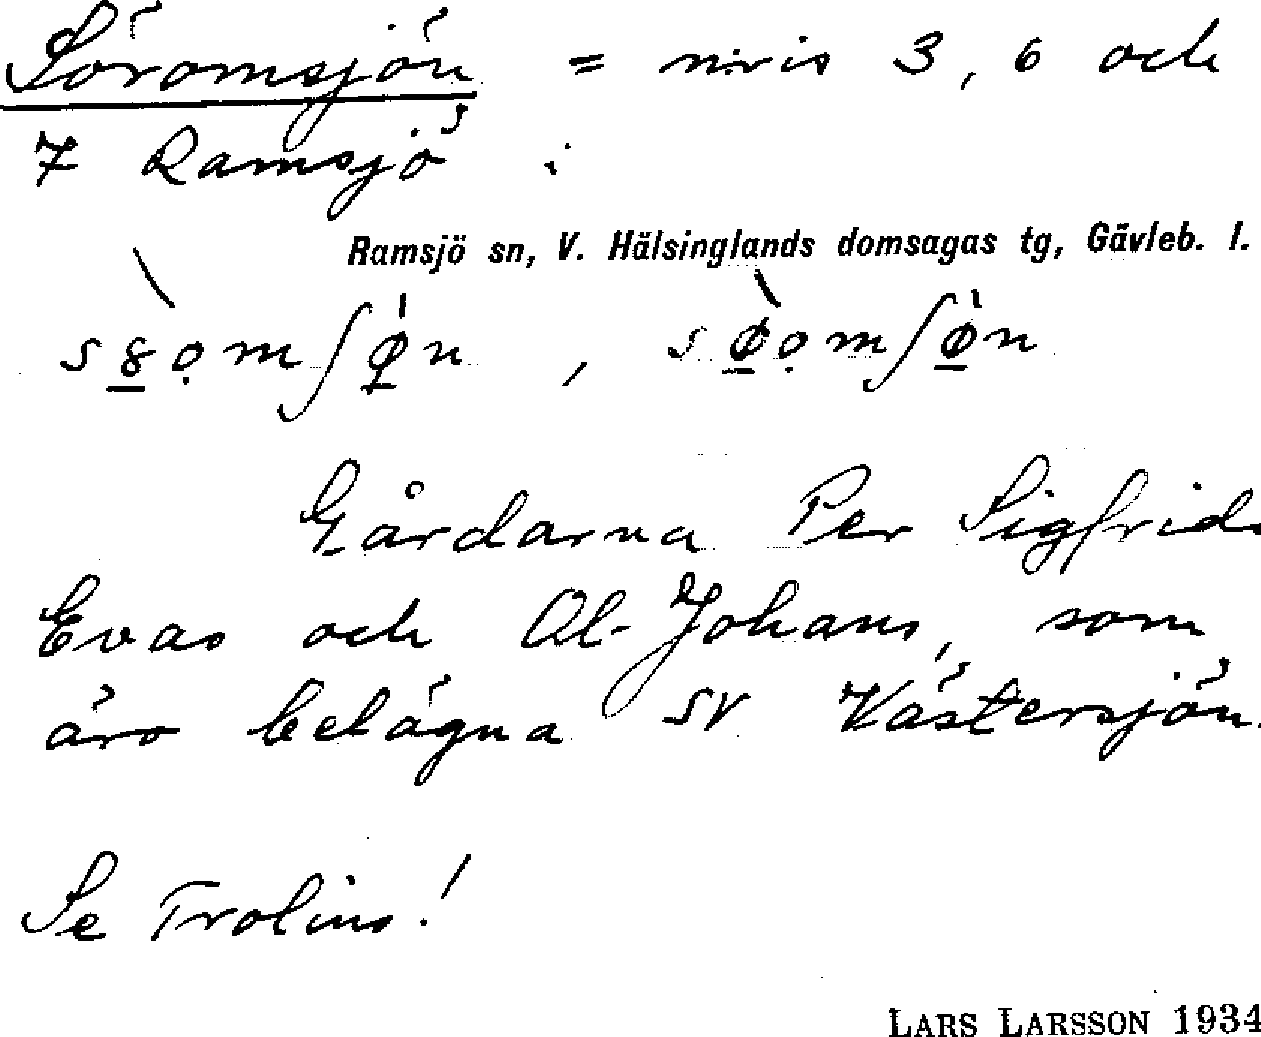 Söromsjön = n:ris 3, 6 och
7 Ramsjö i
Ramsjö sn, V. Hälsinglands domsagas tg, Gävleb. l.
Gårdarna Per Sigfrids
Evas och Ol-Johans, som
äro belägna SV Västersjön.
Se Trolins!
LARS LARSSON 1934